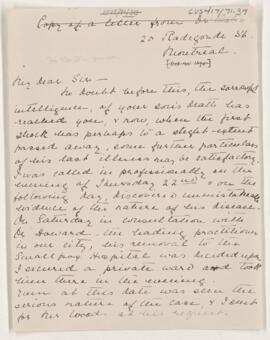 CUS417/71.27
Copy of a letter from Dr
20 Radegonde St.
Montreal.
My dear Sir—
No doubt before this, the sorrowful
intelligence, of your son's death has
reached you, & now, when the first
shock was perhaps to a slight extent
passed away, some further particulars
of his last illness may be satisfactory.
I was called in professionally on the
evening of Thursday 22nd & on the
following day, discovered unmistakable
evidence of the nature of his disease.
On Saturday in consultation with
Dr Howard the leading practitioner
in our city, his removal to the
Smallpox Hospital was decided upon
I secured a private ward and took
him there in the evening.
Even at this date was seen the
serious nature of the case, & I sent
for Mr Wood at his request.